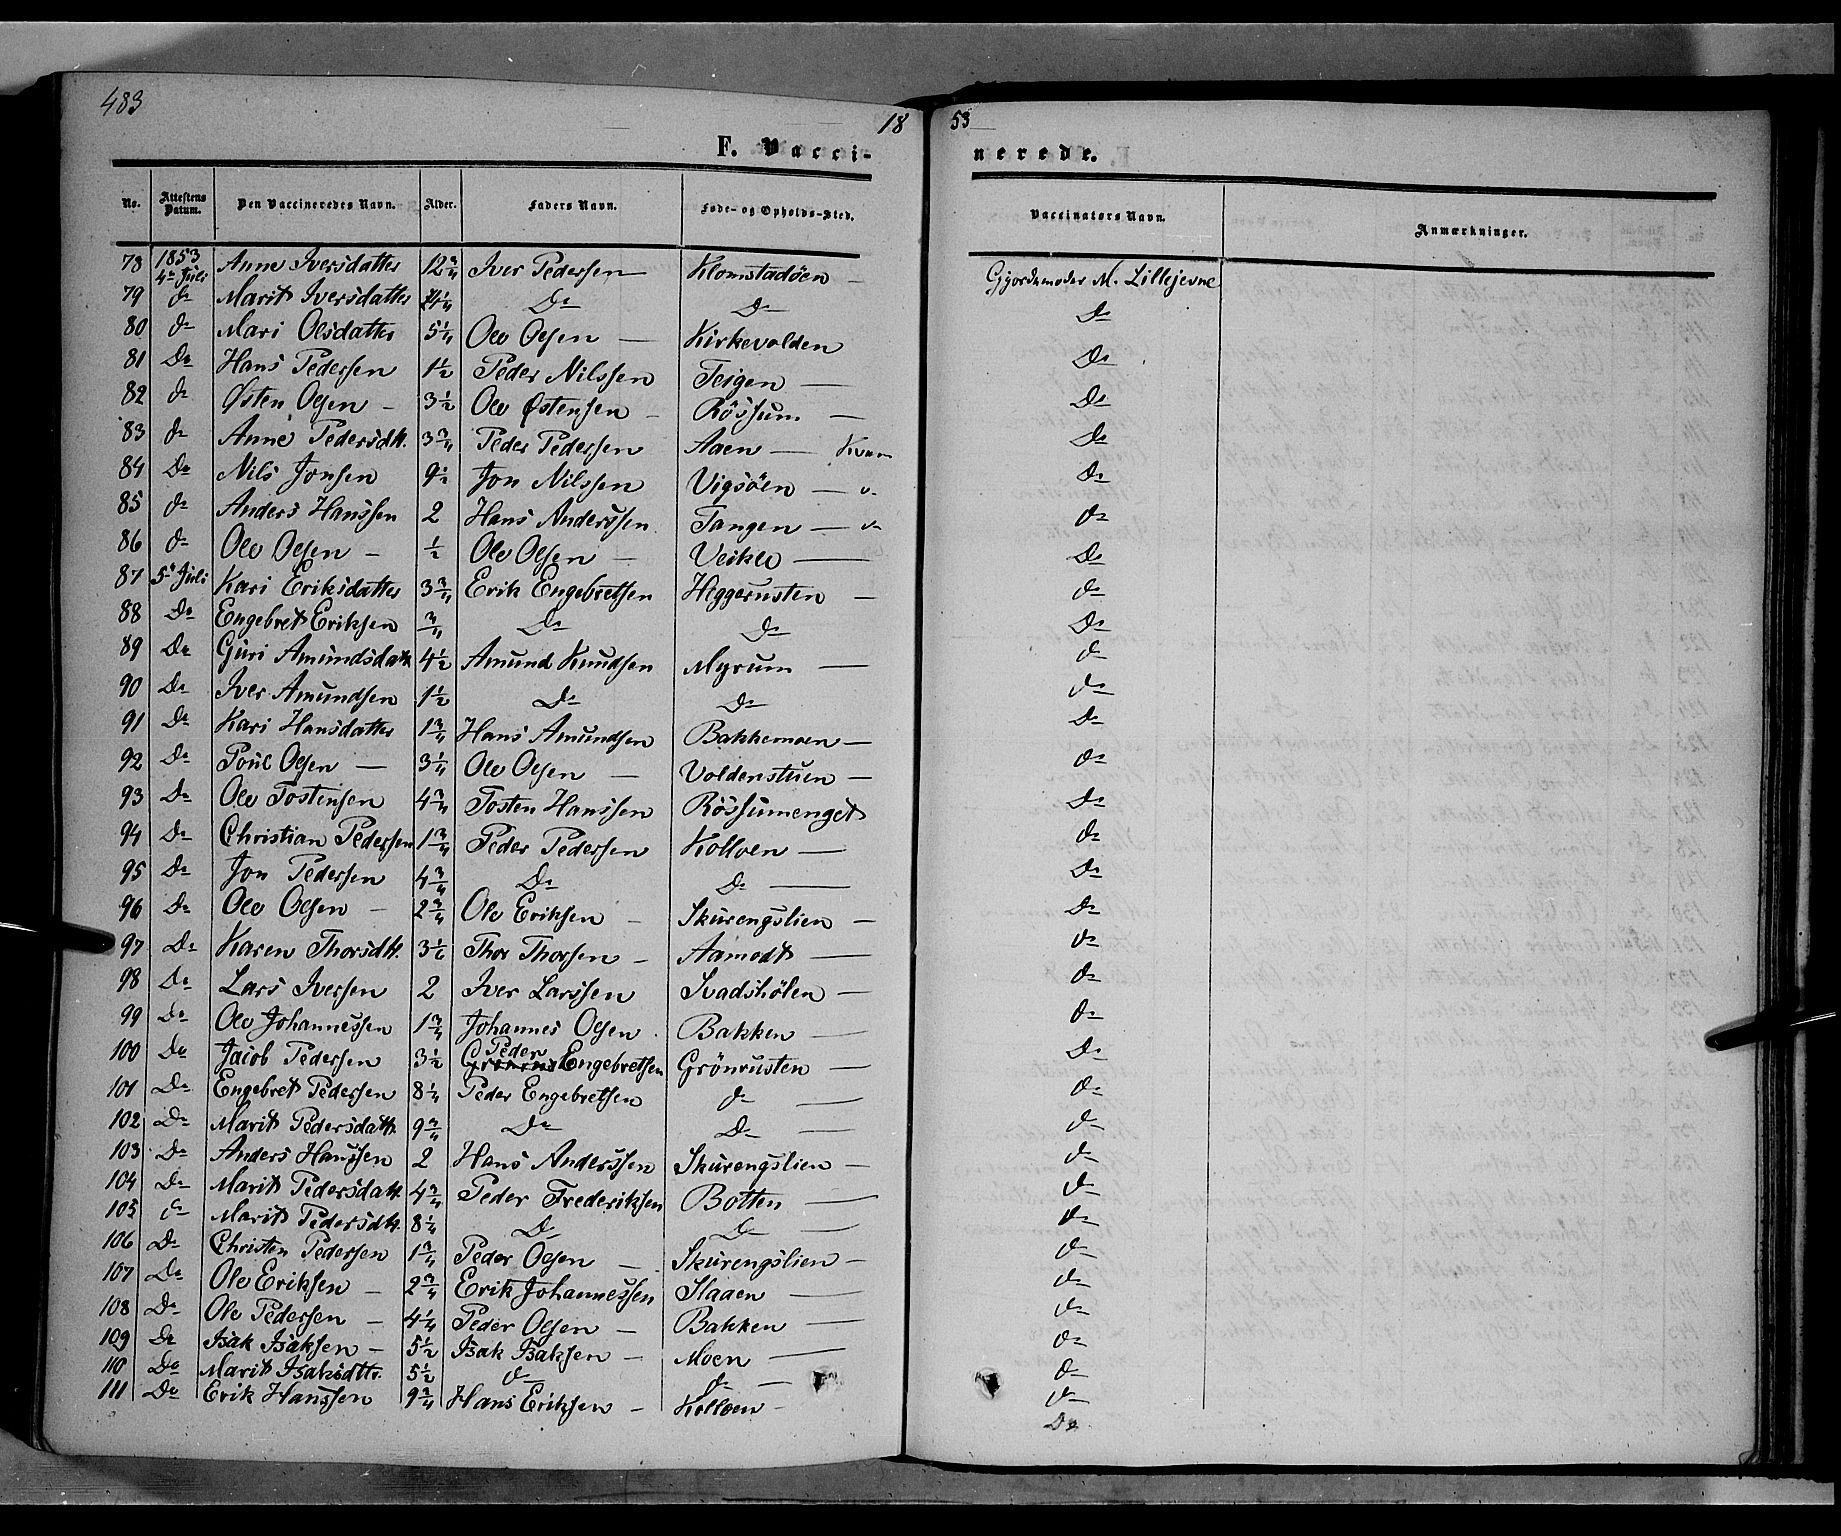 483
18 53
F. Vacci- nerede.
No. Attestens Datum. Den Vaccineredes Navn. Alder. Faders Navn. Føde- og Opholds-Sted. Vaccinators Navn. Anmærkninger.
78 1853 4de Juli Anne Iversdatter 12 3/4 Iver Pedersen Klomstadöen — Gjordemoder M. Lillejevne
79 do Marit Iversdatter Do Do Do
80 do Mari Olsdatter 5 1/4 Ole Olsen — Kirkevolden Do
81 Do Hans Pedersen 1 1/2 Peder Nilssen Teigen — Do
82 do Østen Olsen — 3 1/2 Ole Østensen — Rössum — Do
83 do Anne Pedersdtr. 3 3/4 Peder Pedersen Aaen — Kvam Do
84 Do Nils Jonsen 9 1/2 Jon Nilssen Vigsöen — do
85 do Anders Hanssen 2 Hans Anderssen Tangen — do
86 do Ole Olsen — 1/2 Ole Olsen — Veikle — Do
87 5te Juli Kari Eriksdatter 3 3/4 Erik Engebretsen Heggerusten — do
88 Do Engebret Eriksen 3/4 Do Do Do
89 Do Guri Amundsdatr 4 1/2 Amund Knudsen Myrum — do
90 Do Iver Amundsen 1 1/2 Do Do do
91 Do Kari Hansdatter 1 3/4 Hans Amundsen Bakkemoen — Do
92 Do Poul Olsen — 3 1/4 Ole Olsen — Voldenstuen — do
93 Do Ole Tostensen 4 3/4 Tosten Hanssen Rössumenget Do
94 Do Christian Pedersen 1 3/4 Peder Pedersen Kolloen — do
95 Do Jon Pedersen 4 3/4 Do Do — Do
96 Do Ole Olsen — 2 3/4 Ole Eriksen — Skurengslien — Do
97 Do Karen Thorsdtr. 3 1/2 Thor Thorsen — Aamodt — do
98 Do Lars Iversen 2 Iver Larssen Svadshölen — do
99 Do Ole Johannessen 1 3/4 Johannes Olsen Bakken — do
100 Do Jacob Pedersen 3 1/2 Peder Engebretsen Grönrusten — Do
101 Do Engebret Pedersen 8 1/4 Peder Engebretsen do — do
102 Do Marit Pedersdatr. 9 3/4 Do Do — do
103 Do Anders Hanssen 2 Hans Anderssen Skurengslien — do
104 Do Marit Pedersdatr. 4 3/4 Peder Frederiksen Botten — do
105 do Marit Pedersdtr. 8 1/4 Do Do do
106 Do Christen Pedersen 1 3/4 Peder Olsen — Skurengslien — do
107 Do Ole Eriksen — 2 3/4 Erik Johannessen Slaaen — do
108 Do Ole Pedersen — 4 1/4 Peder Olsen — Bakken — do
109 Do Isak Isaksen — 5 1/2 Isak Isaksen — Moen — do
110 Do Marit Isaksdtr. 5 1/2 do do — do
111 Do Erik Hanssen 9 3/4 Hans Eriksen — Kolloen — do
Do